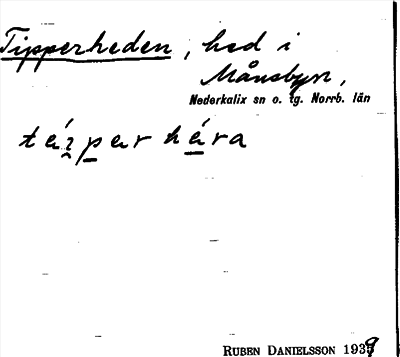 Tipperheden, hed i
Månsbyn,
Nederkalix sn o. tg. Norrb. län
RUBEN DANIELSSON 1939